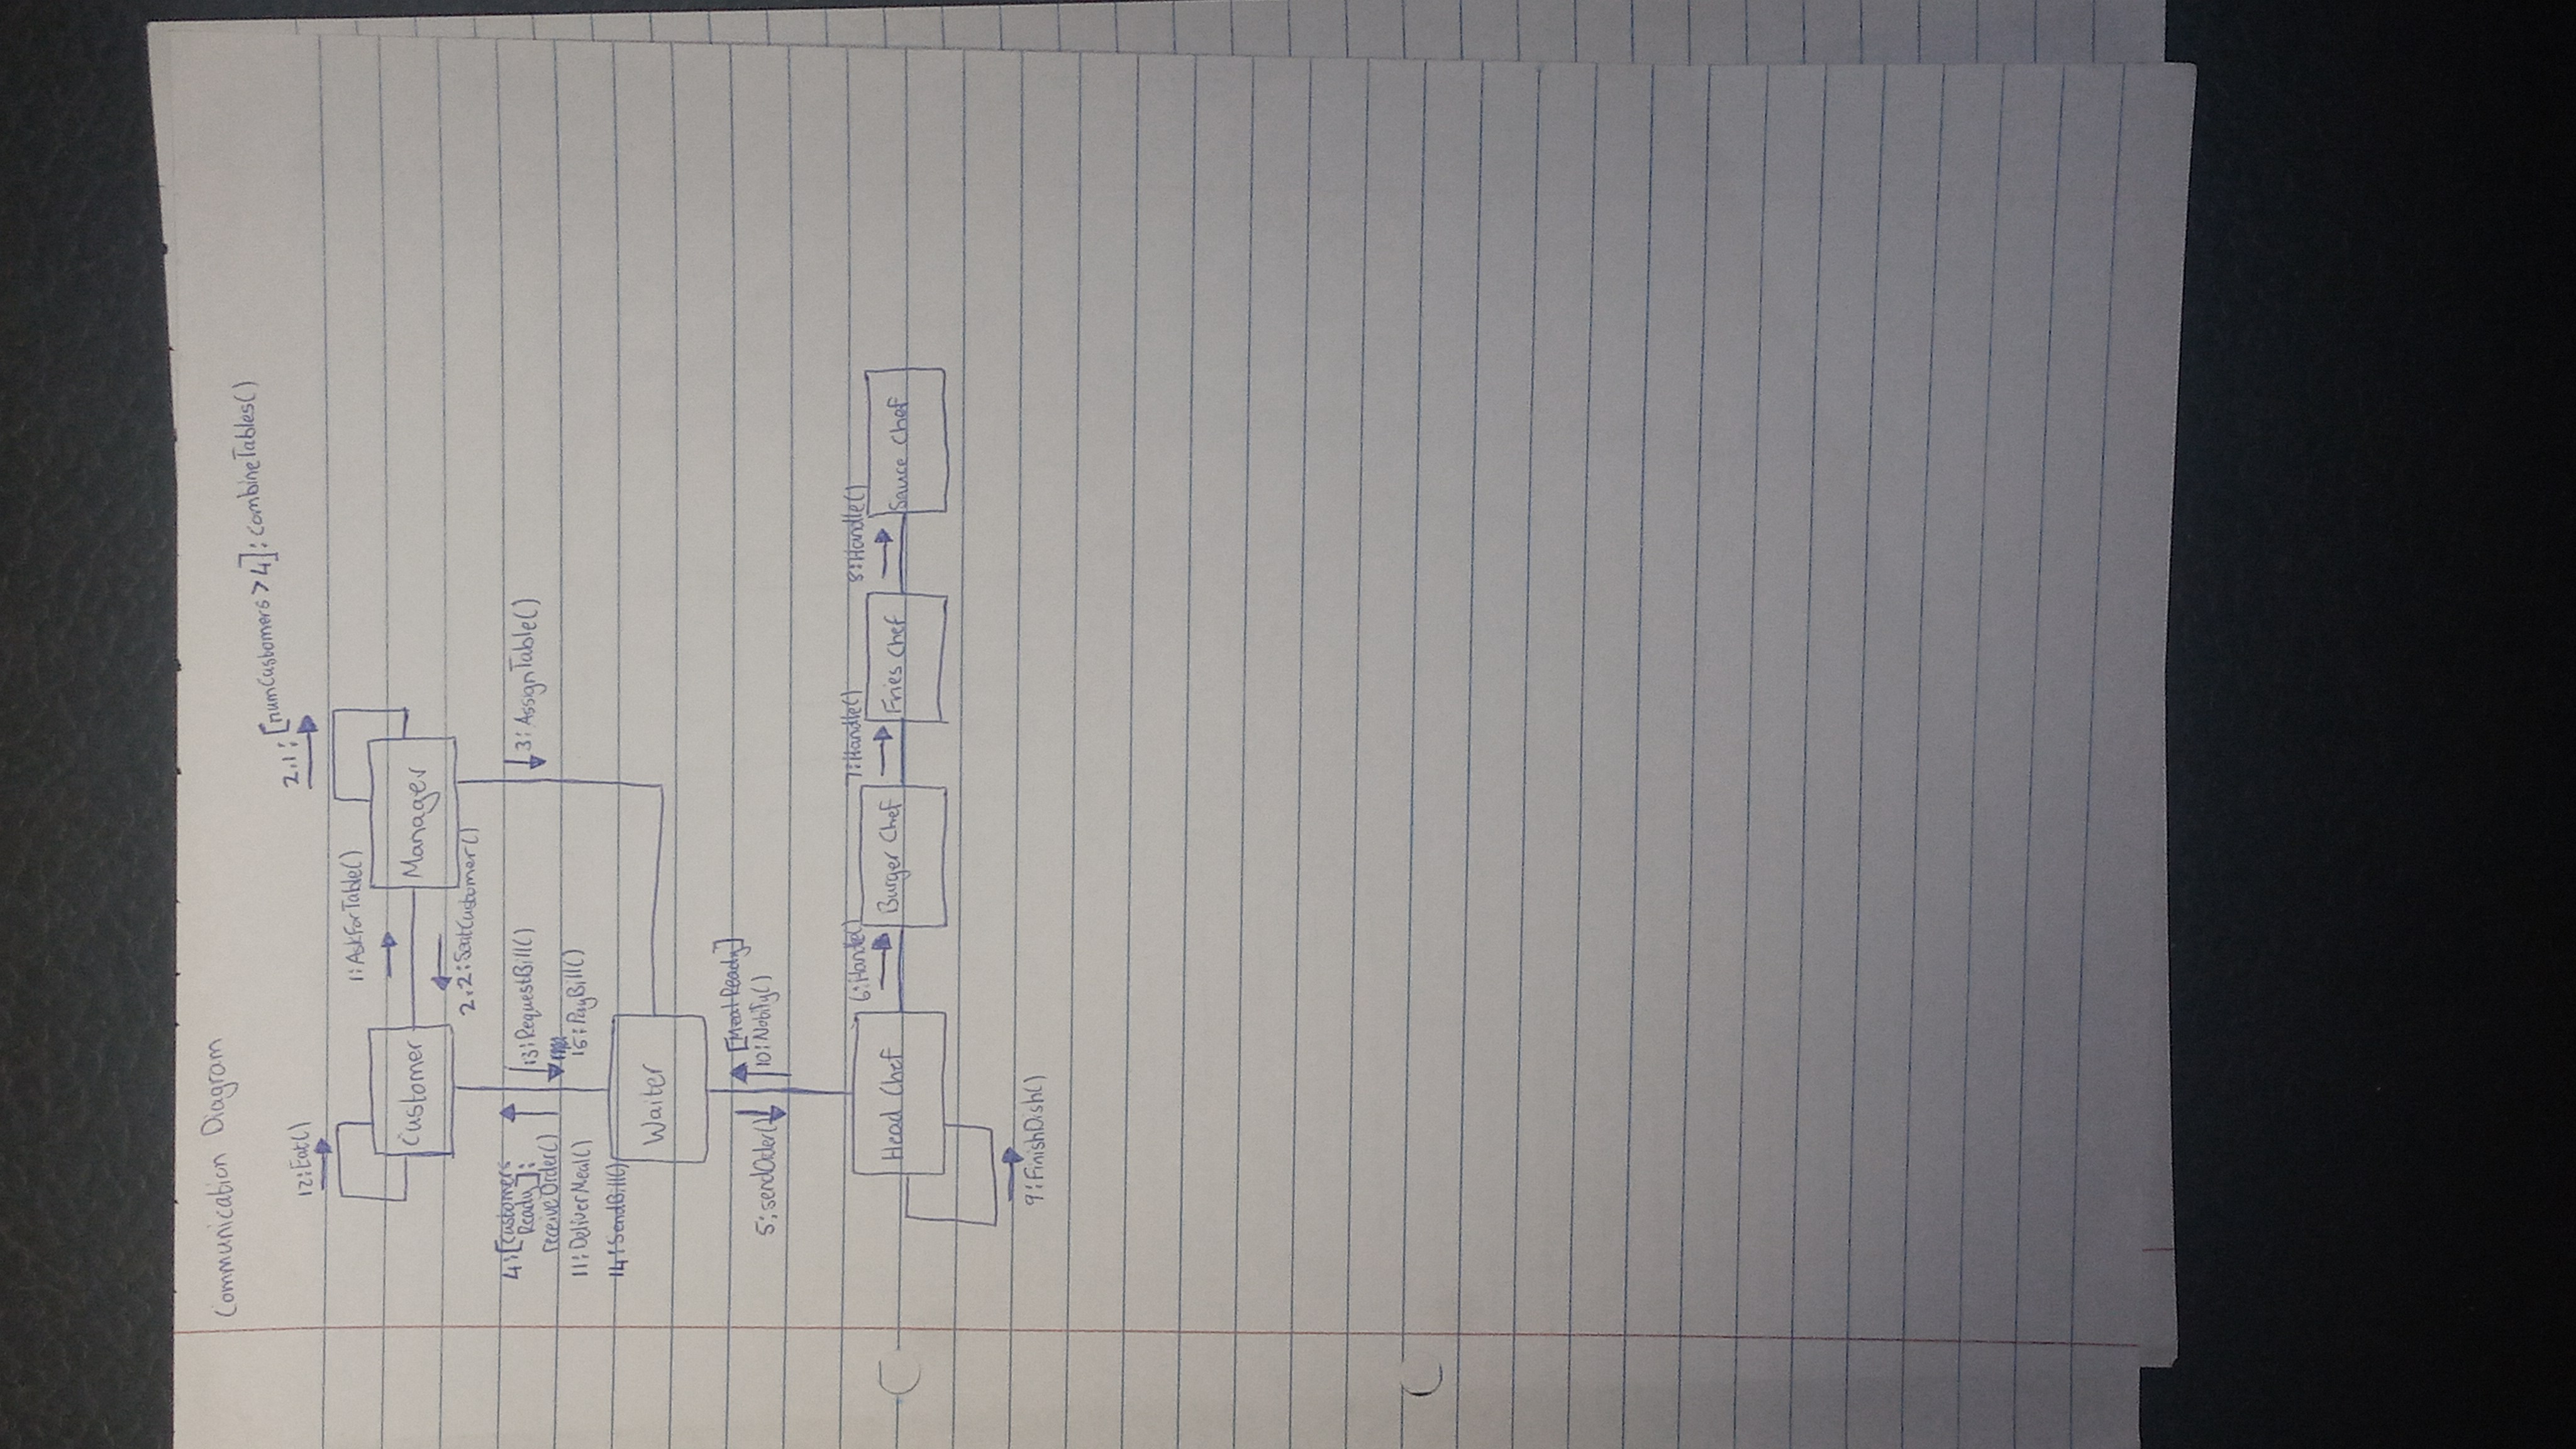 Communication Diagram
2.1: [numCustomers > 4]: combineTables()
12: Eat()
1: AskForTable()
Customer
Manager
2.2: SeatCustomer()
4: [Customers
Ready]:
receiveOrder()
11: DeliverMeal()
14: SendBill()
13: RequestBill()
15: PayBill()
3: AssignTable()
Waiter
[Meal Ready]
5: sendOrder()
10: Notify()
6: Handle()
7: Handle()
8: Handle()
Head Chef
Burger Chef
Fries Chef
Sauce Chef
9: FinishDish()